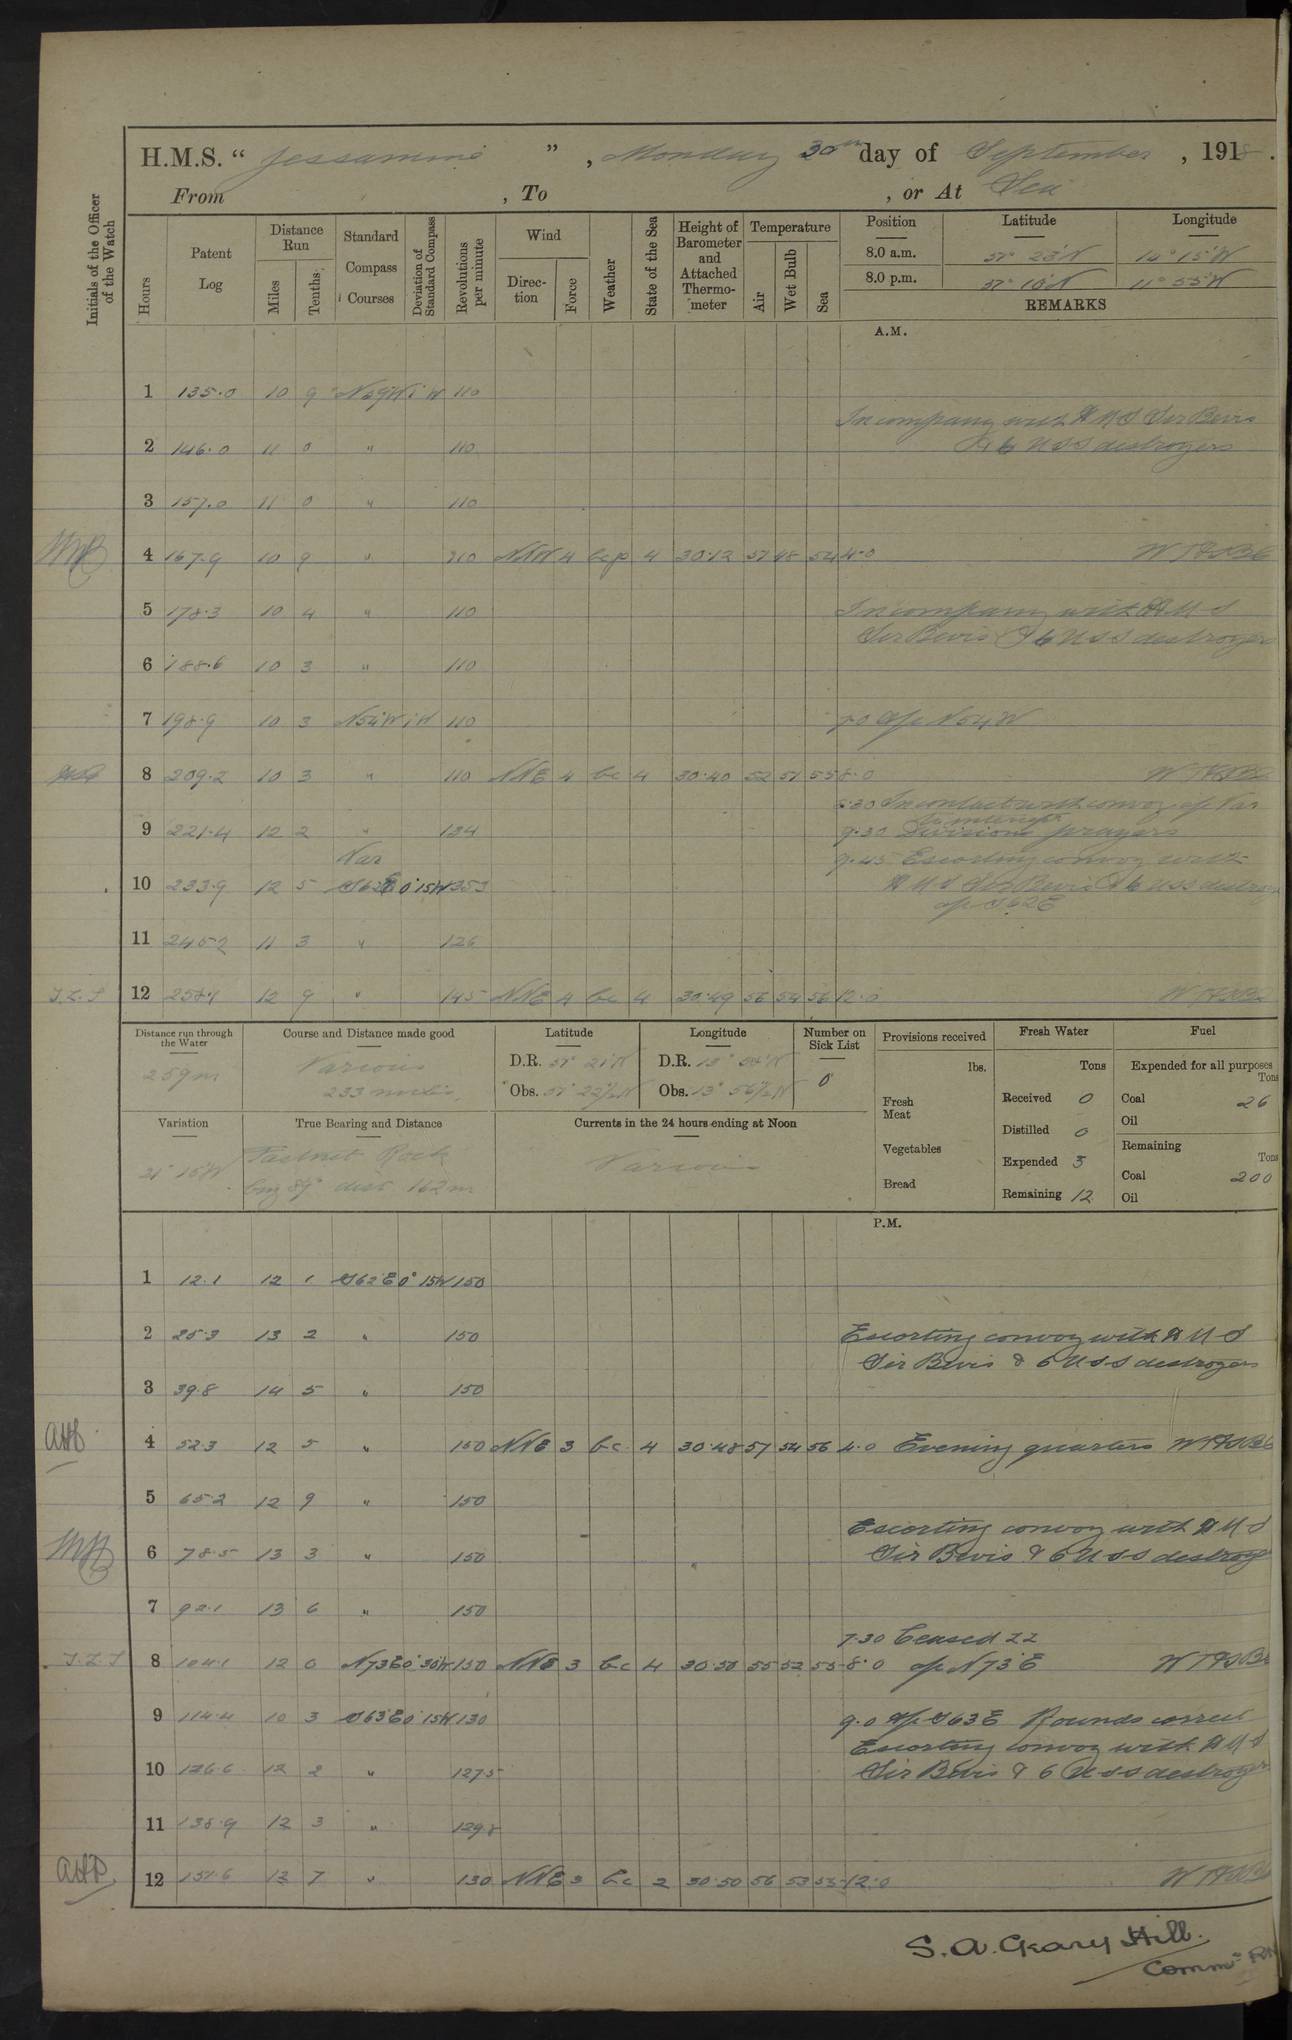 H.M.S. “ Jessamine ” , Monday 30th day of September , 1918 .
From , To , or At Sea
Initials of the Officer of the Watch
Hours
Patent Log
Distance Run
Miles Tenths
Standard Compass Courses
Deviation of Standard Compass
Revolutions per minute
Wind
Direction Force
Weather
State of the Sea
Height of Barometer and Attached Thermometer
Temperature
Air Wet Bulb Sea
Position Latitude Longitude
8.0 a.m. 51° 23'N 14° 15'W
8.0 p.m. 51° 10'N 11° 55'W
REMARKS
A.M.
1 135.0 10 9 N69W 1W 110
In company with H M S Sir Bevis
2 146.0 11 0 " 110 & 6 USS destroyers
3 157.0 11 0 " 110
4 167.9 10 9 " 110 NNW 4 bcp 4 30.12 51 48 54 4.0
5 178.3 10 4 " 110 In company with H M S
Sir Bevis & 6 USS destroyers
6 188.6 10 3 " 110
7 198.9 10 3 N54W 1W 110 7.0 a/c N54W
8 209.2 10 3 " 110 NNE 4 bc 4 30.40 52 51 55 8.0
8.30 In contact with convoy a/c Var
to intercept
9 221.4 12 2 " 134 9.30 Divisions prayers
Var
9.45 Escorting convoy with
10 233.9 12 5 S62E 0°15W 153 H M S Sir Bevis & 6 USS destroy
a/c S62E
11 245.2 11 3 " 126
J.L.S 12 258.1 12 9 " 145 NNE 4 bc 4 30.49 56 54 56 12.0
Distance run through the Water
259m
Course and Distance made good
Various
233 miles
Latitude
D.R. 51° 21'N
Obs. 51° 22½N
Longitude
D.R. 13°
Obs. 13° 56½W
Number on Sick List
0
Provisions received
lbs.
Fresh Meat
Vegetables
Bread
Fresh Water
Tons
Received 0
Distilled 0
Expended 3
Remaining 12
Fuel
Expended for all purposes
Tons
Coal 26
Oil
Remaining
Tons
Coal 200
Oil
Variation
21° 15'W
True Bearing and Distance
Fastnet Rock
brg 89° dist 162 m
Currents in the 24 hours ending at Noon
Various
P.M.
1 12.1 12 1 S62°E 0°15W 150
2 25.3 13 2 " 150 Escorting convoy with H M S
Sir Bevis & 6 USS destroyers
3 39.8 14 5 " 150
4 52.3 12 5 " 150 NNE 3 bc 4 30.48 57 54 56 4.0 Evening quarters
5 65.2 12 9 " 150
Escorting convoy with H M S
6 78.5 13 3 " 150 Sir Bevis & 6 USS destroy
7 92.1 13 6 " 150
7.30 Ceased ZZ
J.L.S 8 104.1 12 0 N73E 0°30W 150 NNE 3 bc 4 30.50 55 52 55 8.0 a/c N73°E
9 114.4 10 3 S63°E 0°15W 130 9.0 a/c S63E Rounds correct
Escorting convoy with H M S
10 126.6 12 2 " 127.5 Sir Bevis & 6 USS destroyer
11 138.9 12 3 " 129.8
12 151.6 12 7 " 130 NNE 3 bc 2 30.50 56 53 53 12.0
S. A. Geary Hill.
Commr RN